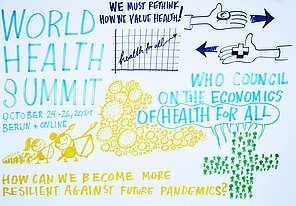 WORLD
HEALTH
SUMMIT
OCTOBER 24-26, 2021
BERLIN + ONLINE
WE MUST RETHINK
HOW WE VALUE HEALTH!
health for all
WHO COUNCIL
ON THE ECONOMICS
OF HEALTH FOR ALL
HOW CAN WE BECOME MORE
RESILIENT AGAINST FUTURE PANDEMICS?